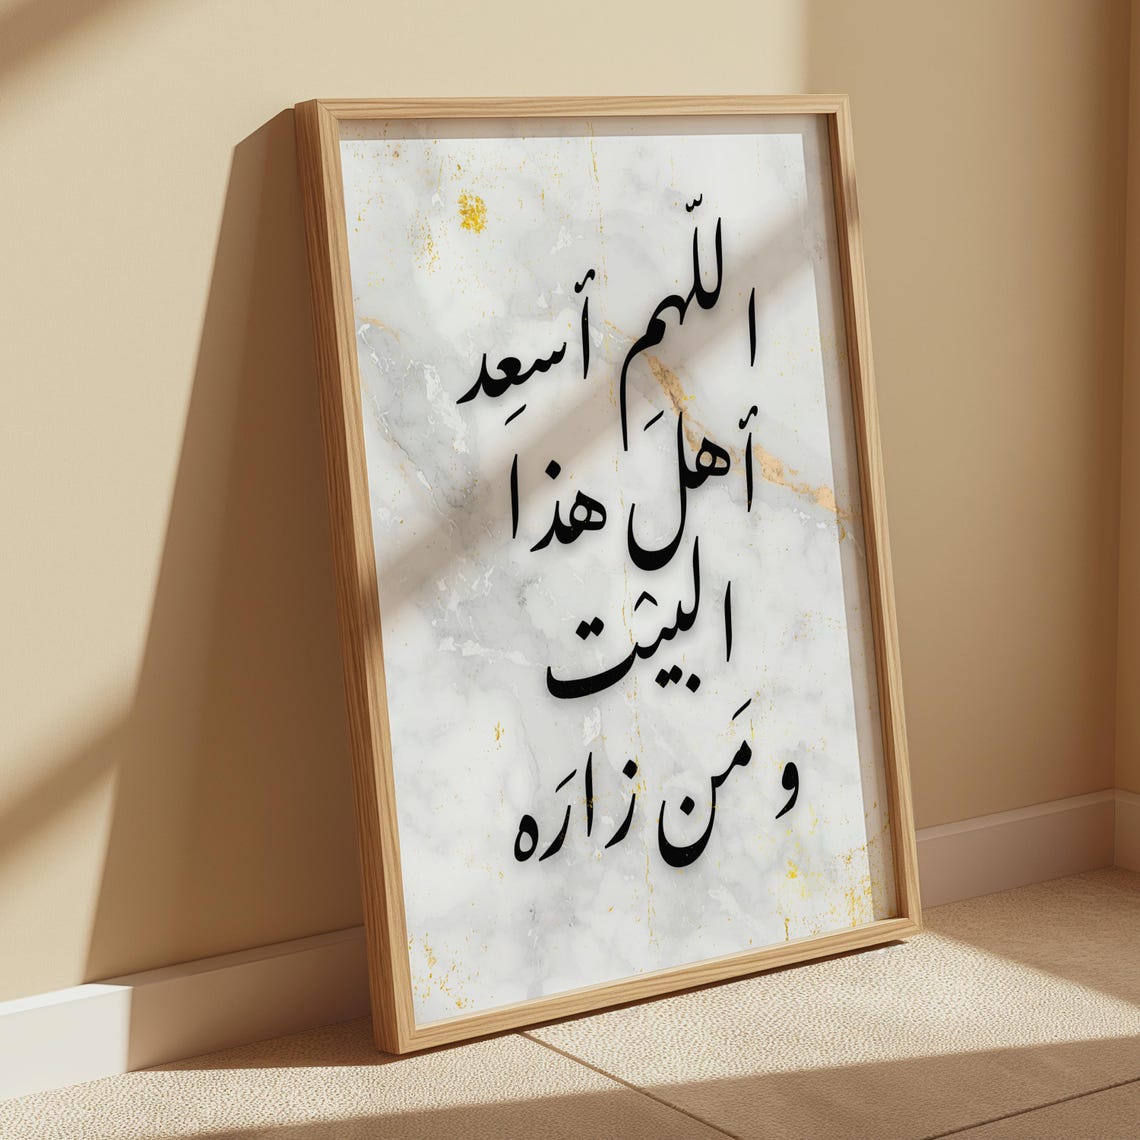 اللّهم أسعِد
أهلَ هذا
البيْت
و مَن زارَه